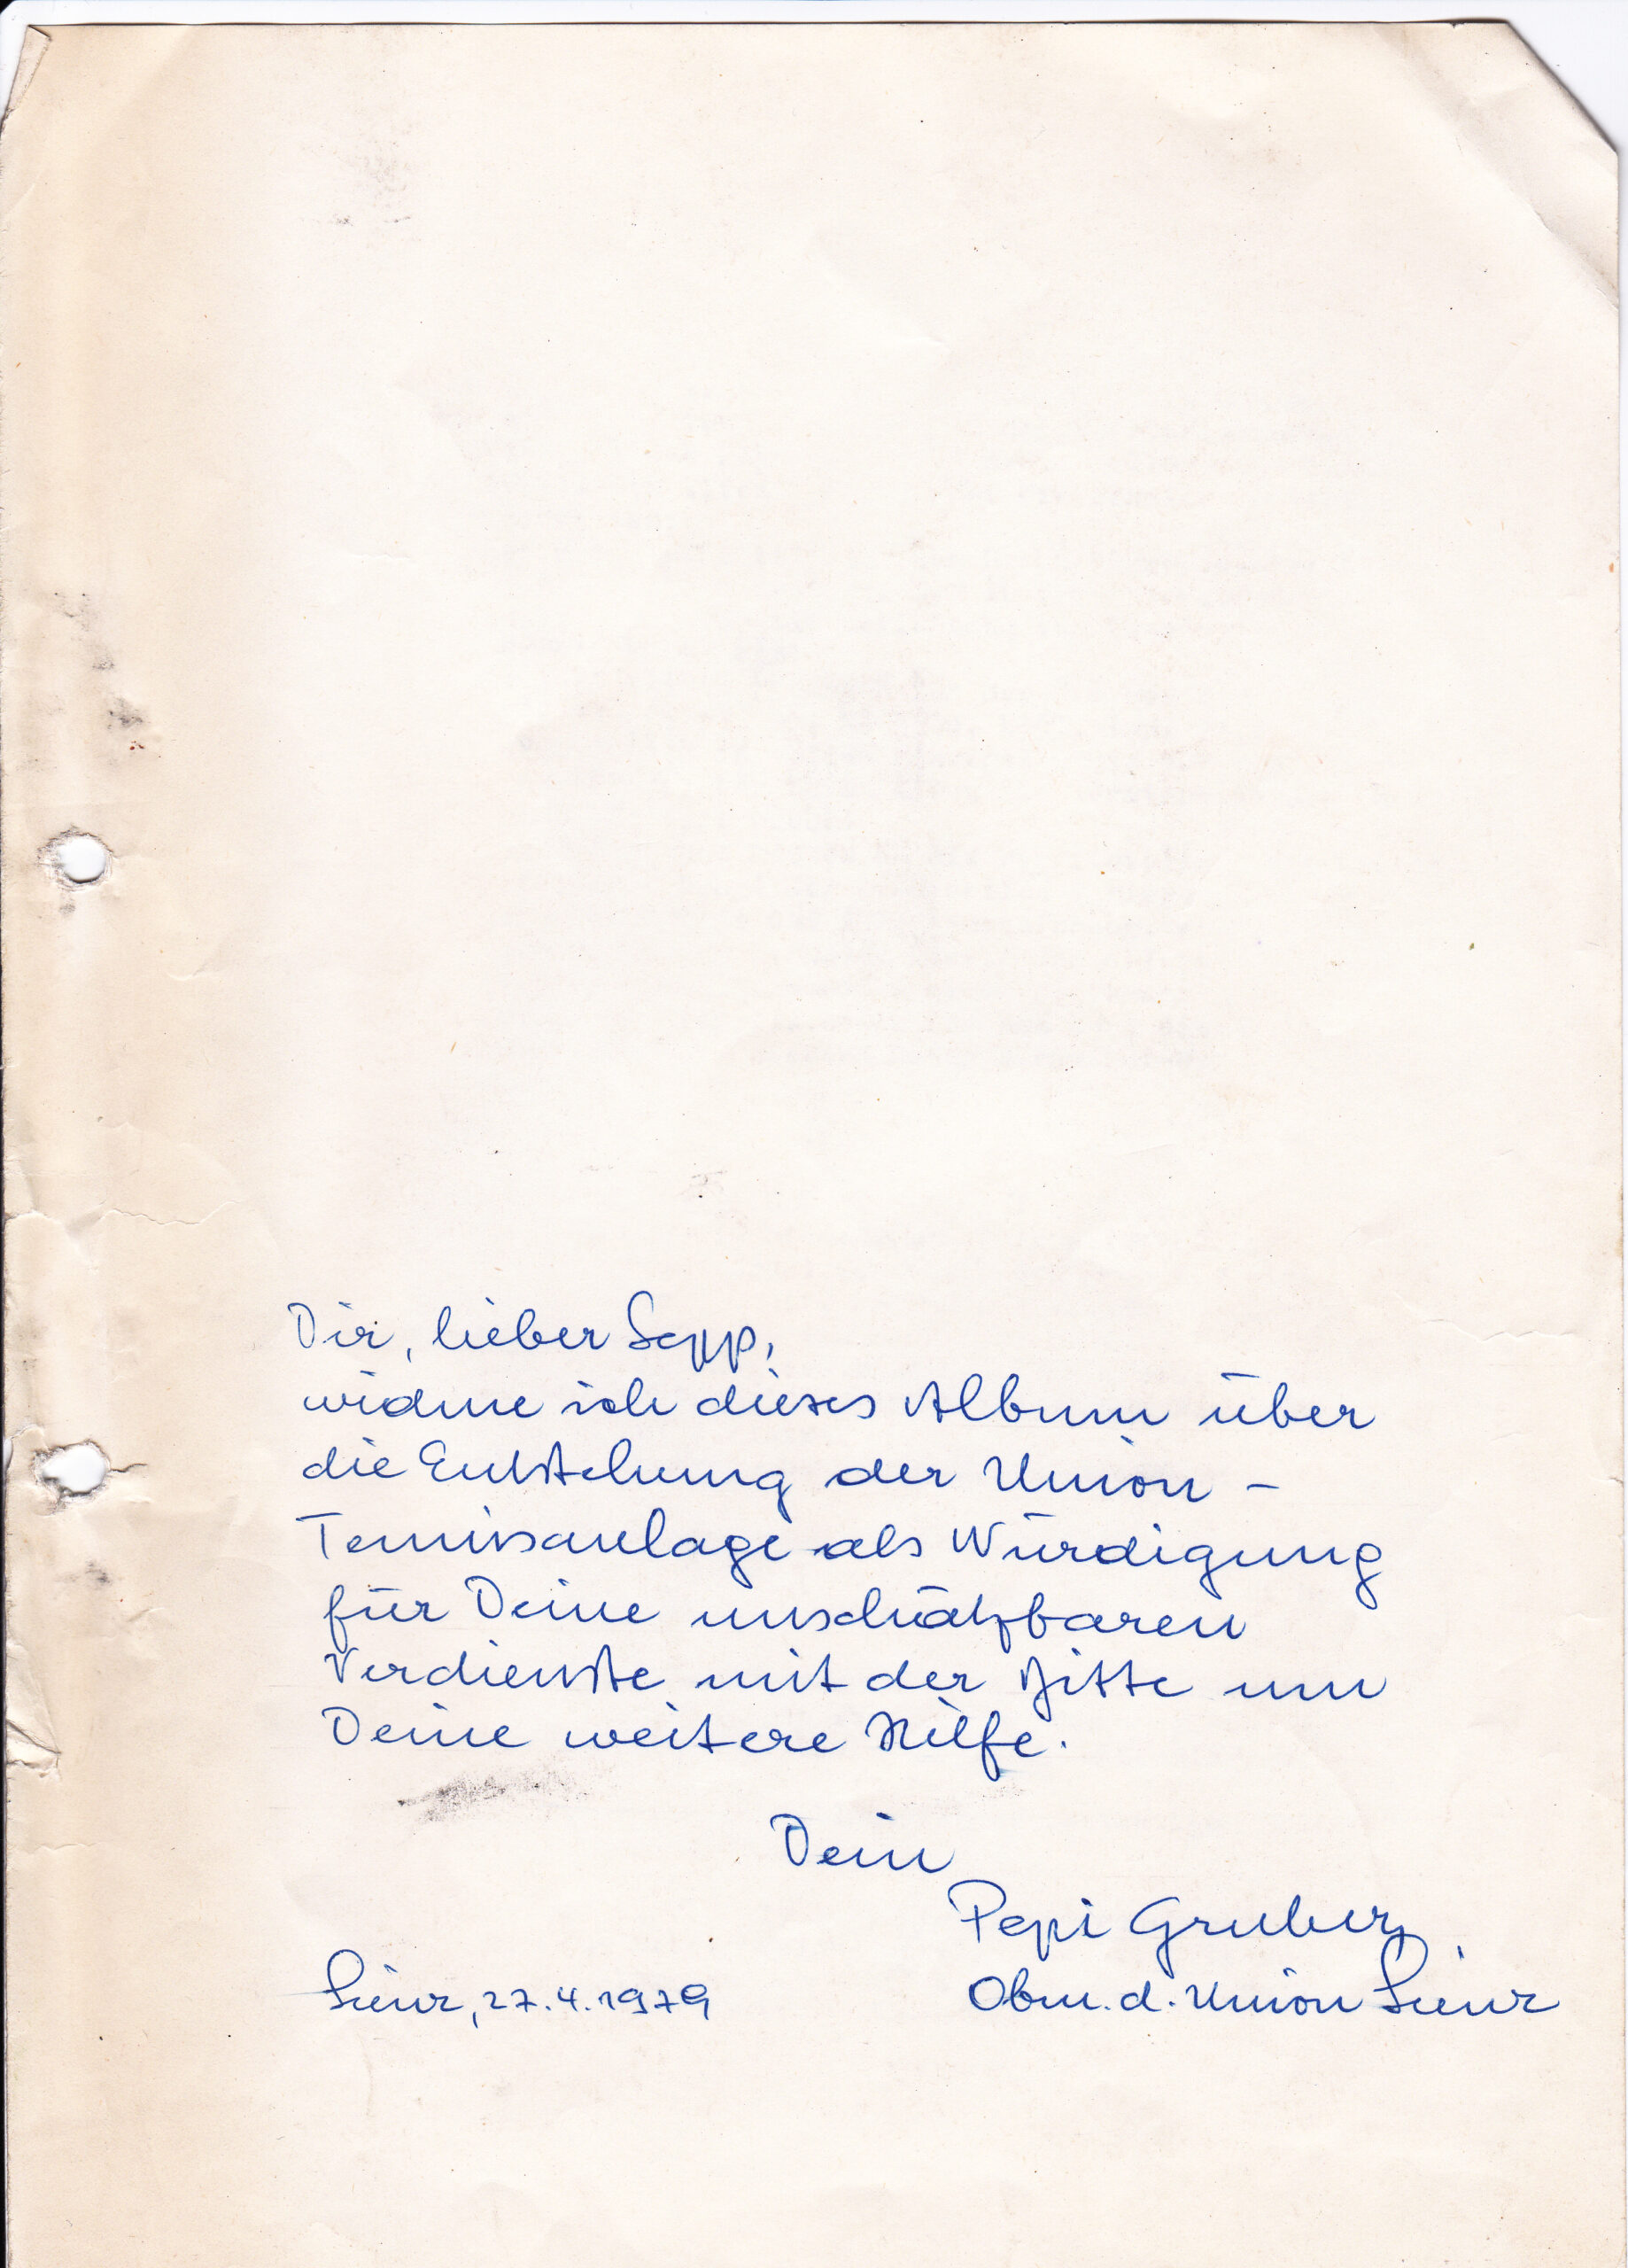 Dir, lieber Sepp,
widme ich dieses Album über
die Entstehung der Union -
Tennisanlage als Würdigung
für Deine unschätzbaren
Verdienste mit der Bitte um
Deine weitere Hilfe.
Dein
Pepi Gruber
Lienz, 27.4.1979
Obm. d. Union Lienz